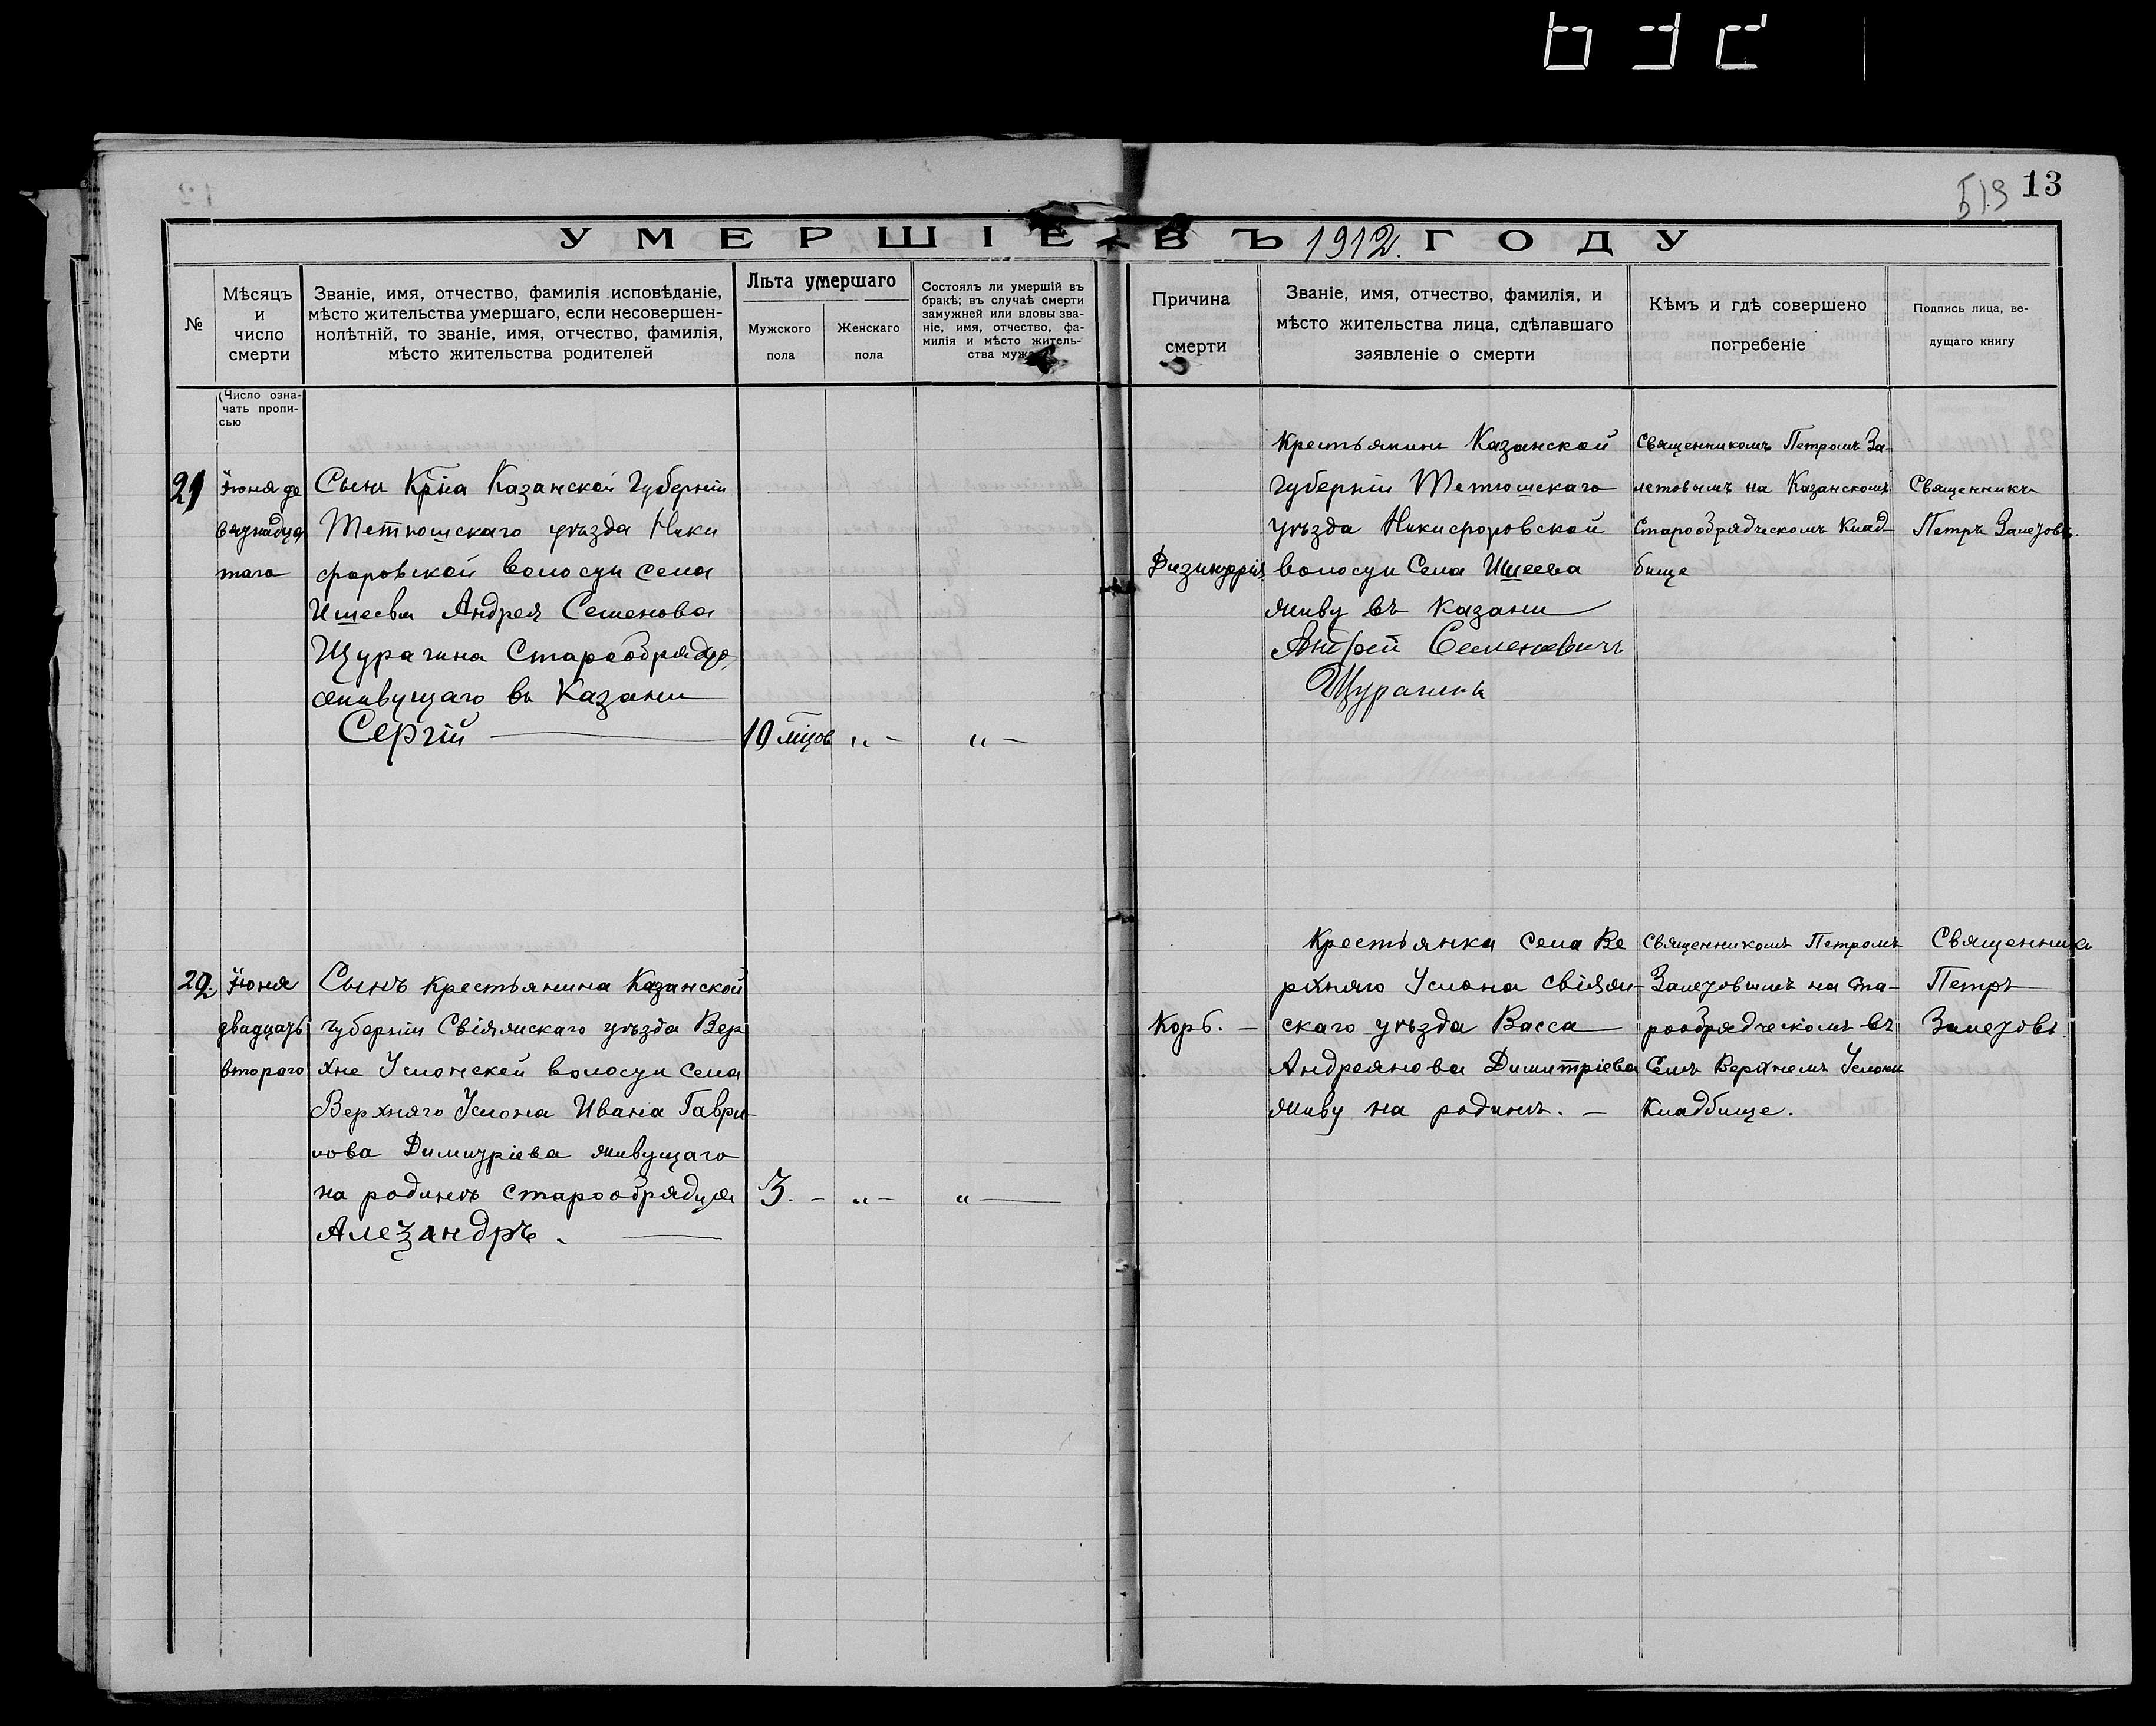 13
УМЕРШІЕ ВЪ 1912. ГОДУ
№
Мѣсяцъ
и
число
смерти
Званіе, имя, отчество, фамилія исповѣданіе,
мѣсто жительства умершаго, если несовершен-
нолѣтній, то званіе, имя, отчество, фамилія,
мѣсто жительства родителей
Лѣта умершаго
Мужского
пола
Женскаго
пола
Состоялъ ли умершій въ
бракѣ; въ случаѣ смерти
замужней или вдовы зва-
ніе, имя, отчество, фа-
милія и мѣсто житель-
ства мужа
Причина
смерти
Званіе, имя, отчество, фамилія, и
мѣсто жительства лица, сдѣлавшаго
заявленіе о смерти
Кѣмъ и гдѣ совершено
погребеніе
Подпись лица, ве-
дущаго книгу
(Число озна-
чать пропи-
сью
21
Іюня де
вятнадца
таго
Сынъ Крⷭ҇на Казанской Губерніи
Тетюшскаго уѣзда Ники
форовской волости села
Ишеева Андрея Семенова
Щурагина Старообрядца,
живущаго въ Казани
Сергій —
10 мⷭ҇цов
„ —
„ —
Дизинтерія
Крестьянинъ Казанской
Губерніи Тетюшскаго
уѣзда Никифоровской
волости Села Ишеева
живу въ Казани
Андрей Семеновичъ
Щурагинъ
Священникомъ Петромъ За-
летовымъ на Казанскомъ
Старообрядческомъ Клад-
бище
Священникъ
Петръ Залетовъ.
22.
Іюня
двадцать
втораго
Сынъ крестьянина Казанской
губерніи Свіяжскаго уѣзда Вер
хне Услонской волости села
Верхняго Услона Ивана Гаври-
лова Димитріева живущаго
на родинѣ старообрядца
Алеѯандръ. —
3. —
„ —
„ —
Корь. —
Крестьянка села Ве
рхняго Услона Свіяж-
скаго уѣзда Васса
Андреянова Димитріева
живу на родинѣ. —
Священникомъ Петромъ
Залетовымъ на Ста-
рообрядческомъ въ
Селѣ Верхнемъ Услоне
Кладбище.
Священникъ
Петръ
Залетовъ.